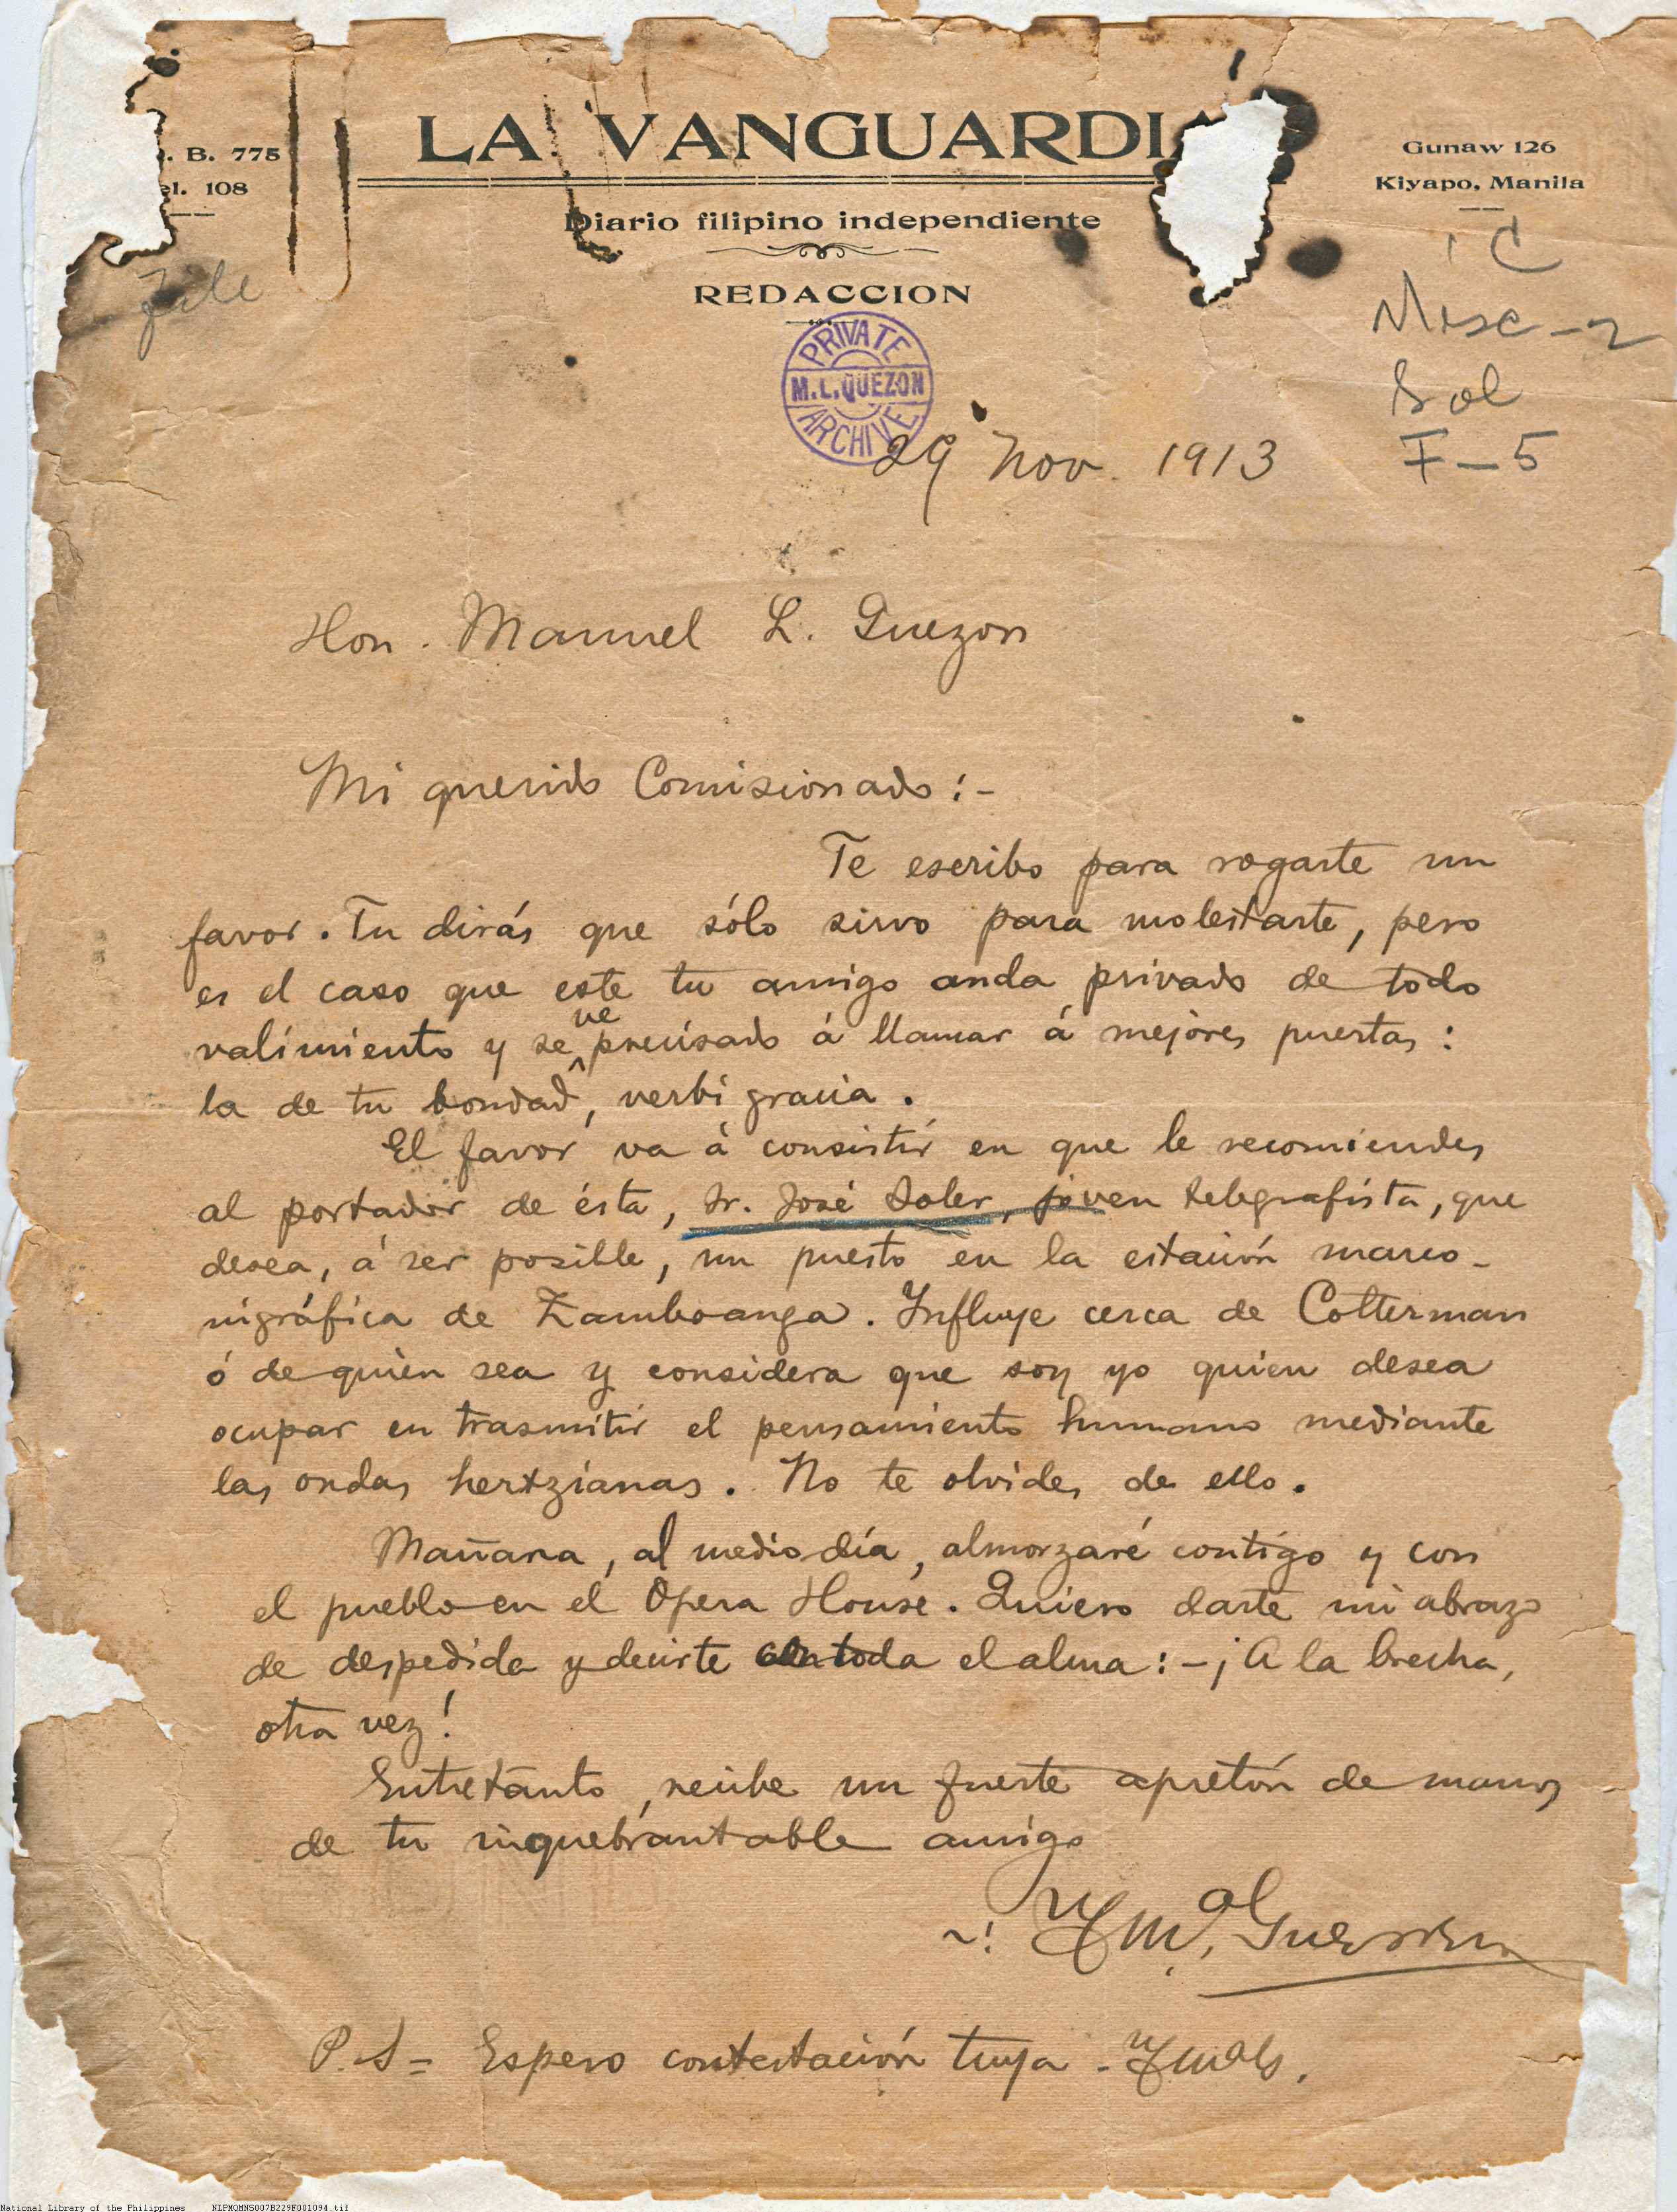 . B. 775
el. 108
LA VANGUARDI
Gunaw 126
Kiyapo, Manila
Diario filipino independiente
REDACCION
File
C
Misc-2
Sol
F-5
PRIVATE
M.L.QUEZON
ARCHIVE
29 Nov. 1913
Hon. Manuel L. Quezon
Mi querido Comisionado:-
Te escribo para rogarte un
favor. Tu dirás que sólo sirvo para molestarte, pero
es el caso que este tu amigo anda privado de todo
valimiento y se ve precisado á llamar á mejores puertas:
la de tu bondad, verbi gracia.
El favor va á consistir en que le recomiendes
al portador de ésta, Sr. José Soler, joven telegrafista, que
desea, á ser posible, un puesto en la estación marco-
nigráfica de Zamboanga. Influye cerca de Cotterman
ó de quien sea y considera que soy yo quien desea
ocupar en trasmitir el pensamiento humano mediante
las ondas hertzianas. No te olvides de ello.
Mañana, al medio día, almorzaré contigo y con
el pueblo en el Opera House. Quiero darte mi abrazo
de despedida y decirte con toda el alma:-¡A la brecha,
otra vez!
Entretanto, recibe un fuerte apretón de manos
de tu inquebrantable amigo
F M. Guerrero
P.S= Espero contestación tuya-
National Library of the Philippines NLPMQMNS007B229F001094.tif